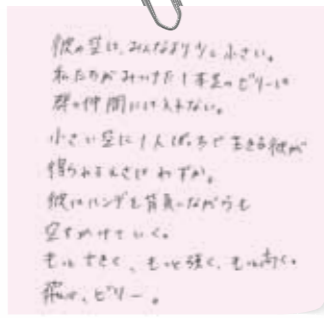 彼の空は、みんなより少し小さい。
私たちがみつけた1本足のビリーは
群の仲間には入れない。
小さい空に1人ぼっちで生きる彼が
得られるえさは わずか。
彼はハンデを背負いながらも
空をかけていく。
もっと大きく、もっと強く、もっと高く。
飛べ、ビリー。